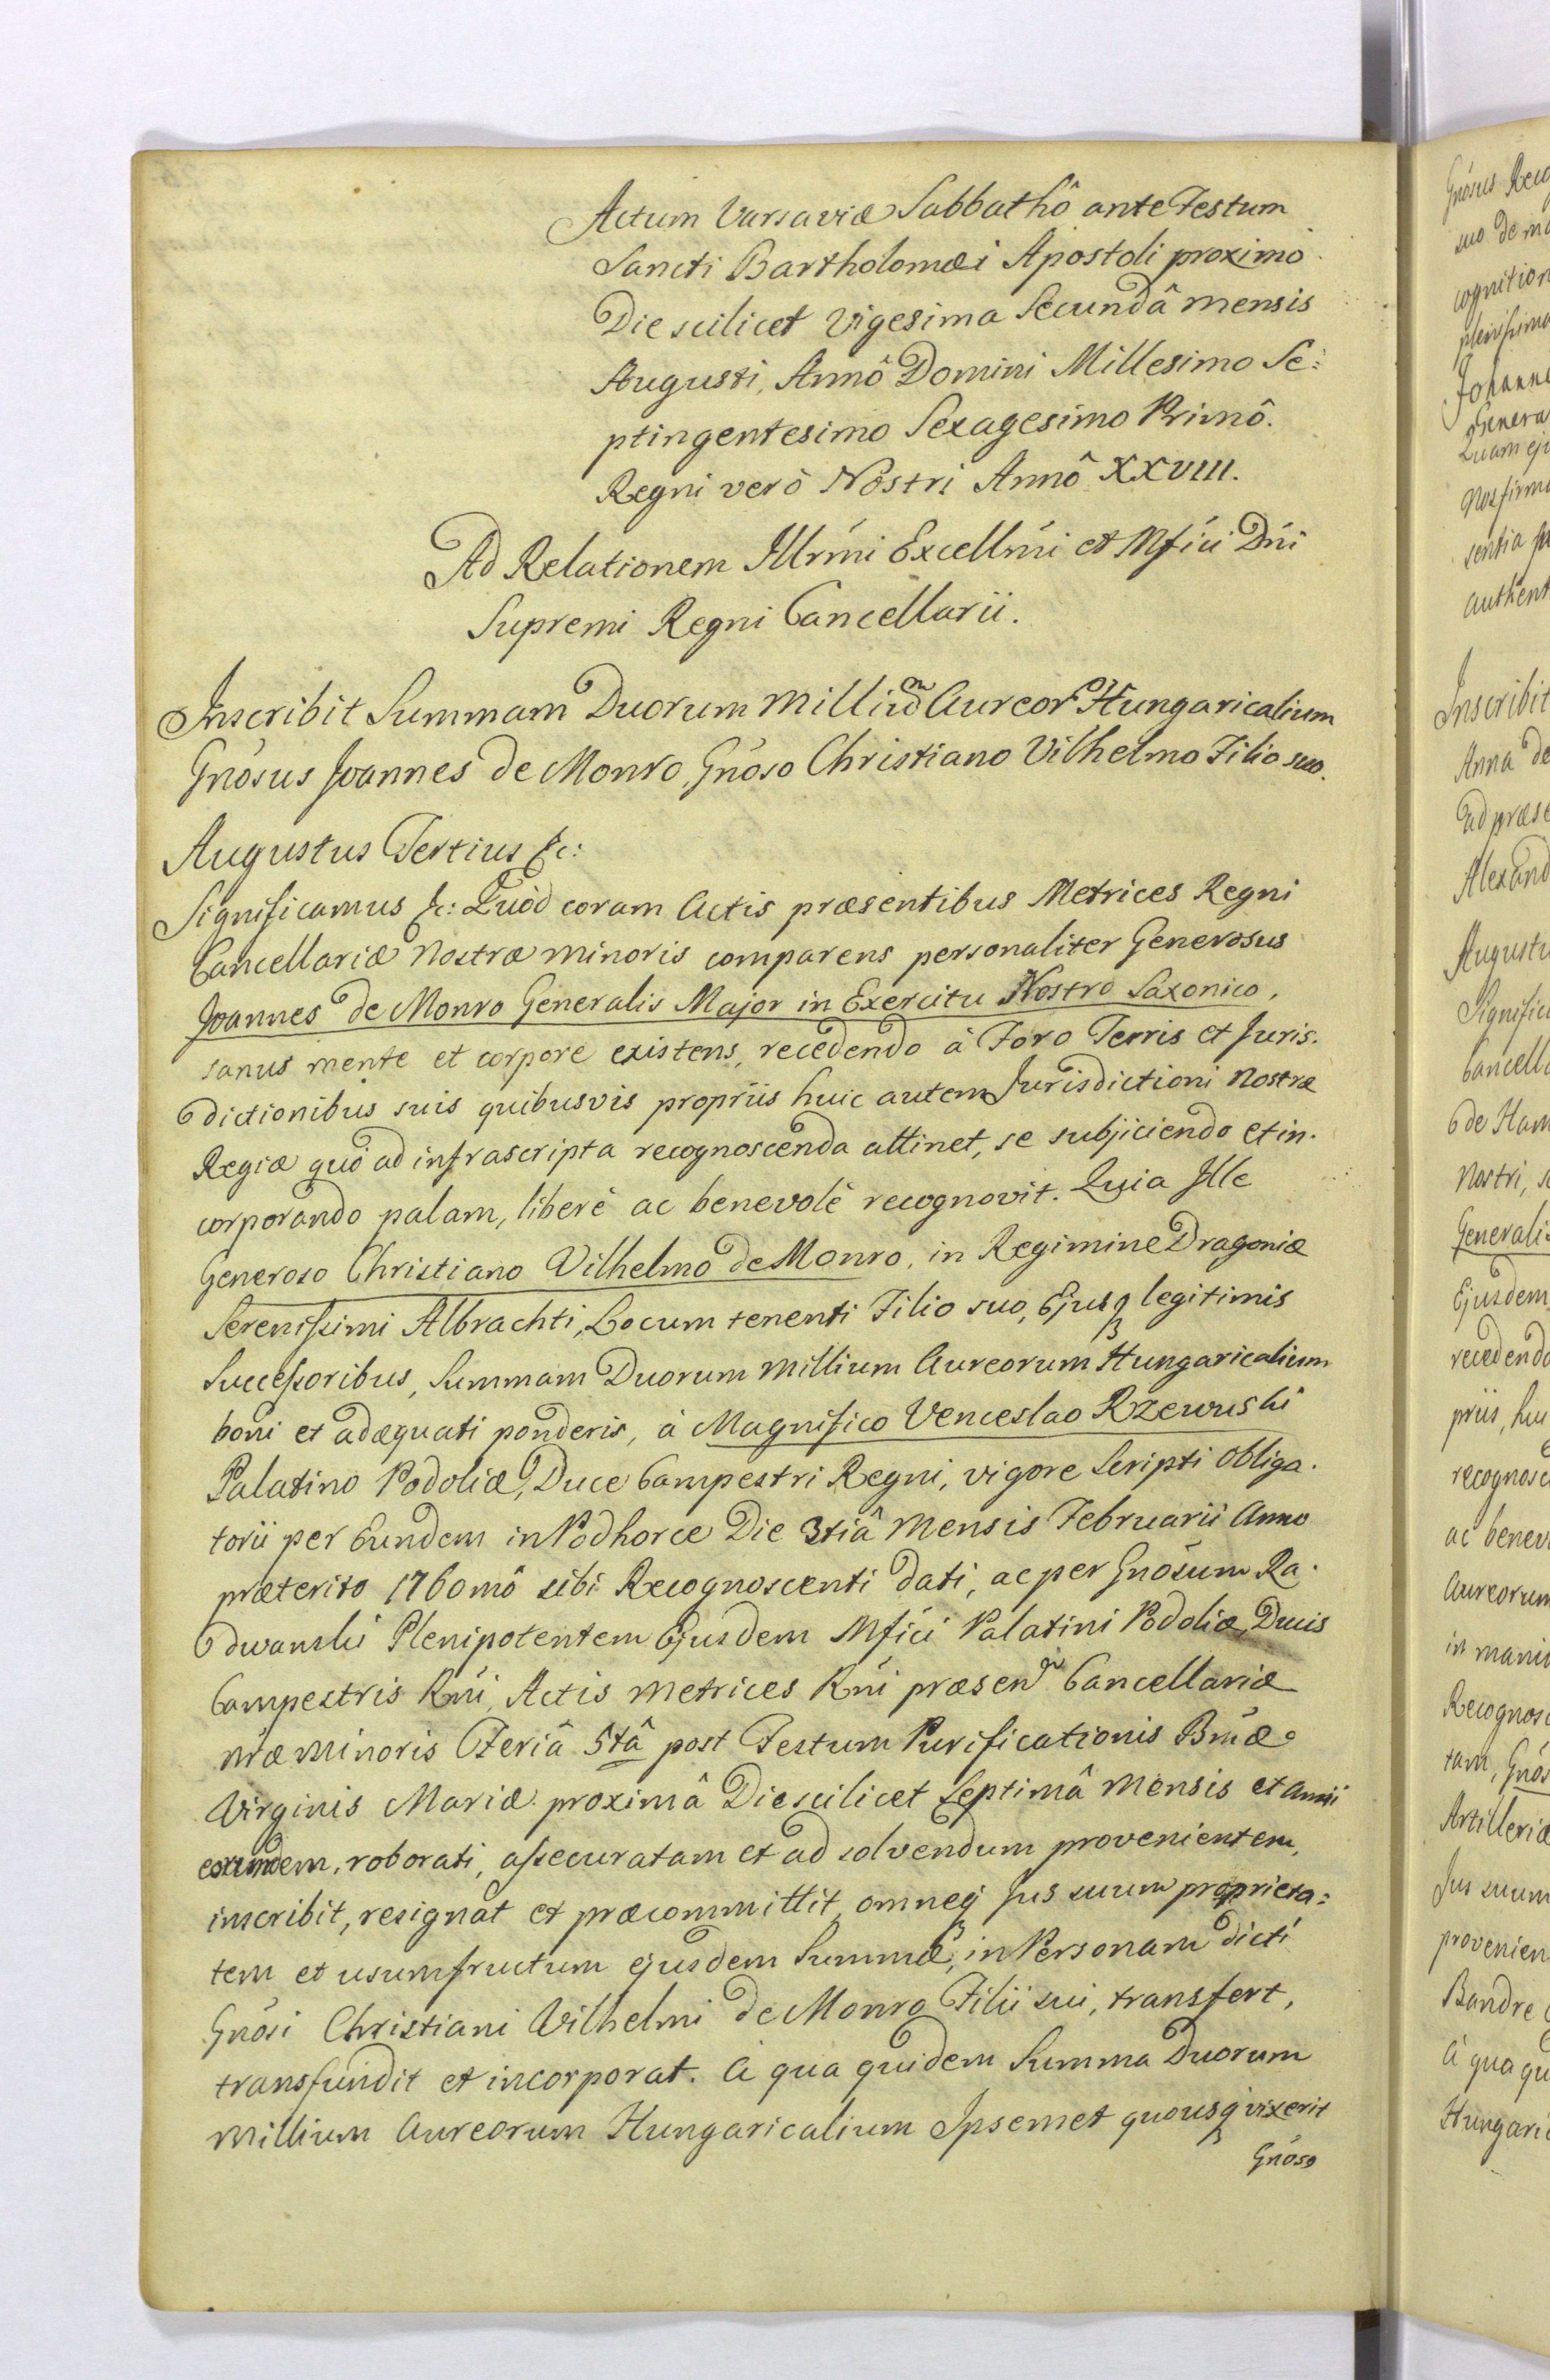 Actum Varsaviæ Sabbathô ante Festum
Sancti Bartholomæi Apostoli proximo
Die scilicet vigesima Secundâ mensis
Augusti, Annô Domini Millesimo Se:
ptingentesimo Sexagesimo Primô.
Regni verò Nostri Annô XXVIII.
Ad Relationem Illrmi Excellmi et Mfici Dni
Supremi Regni Cancellarii.
Inscribit Summam Duorum Millium Aureor Hungaricalium
Gnosus Joannes de Monro, Gnoso Christiano Vilhelmo Filio suo.
Augustus Tertius &c:
Significamus &c: Quòd coram Actis præsentibus Metrices Regni
Cancellariæ Nostræ minoris comparens personaliter Generosus
Joannes de Monro Generalis Major in Exercitu Nostro Saxonico,
sanus mente et corpore existens, recedendo à Foro Terris et Juris.
dictionibus suis quibusvis propriis huic autem Jurisdictioni Nostræ
Regiæ quò ad infrascripta recognoscenda attinet, se subjiciendo et in.
corporando palam, liberè ac benevolè recognovit. Quia Ille
Generoso Christiano Vilhelmo de Monro, in Regimine Dragoniæ
Serenissimi Albrachti, Locum tenenti Filio suo, Ejusq legitimis
Successoribus, Summam Duorum millium Aureorum Hungaricalium
boni et adæquati ponderis, à Magnifico Venceslao Rzewuski
Palatino Podoliæ, Duce Campestri Regni, vigore Scripti Obliga.
torii per Eundem in Podhorce Die 3tiâ Mensis Februarii Anno
præterito 1760mô sibi Recognoscenti dati, ac per Gnosum Ra.
dwanski Plenipotentem Ejusdem Mfici Palatini Podoliæ, Ducis
Campestris Rni, Actis Metrices Rni præsen Cancellariæ
nræ Minoris Feriâ 5tâ post Festum Purificationis Bmæ
Virginis Mariæ proximâ Die scilicet Septimâ Mensis et Anni
eorundem, roborati, assecuratam et ad solvendum provenientem,
inscribit, resignat et præcommittit, omneq Jus suum proprieta:
tem et usumfructum ejusdem Summæ, in Personam dicti
Gnosi Christiani Vilhelmi de Monro Filii sui, transfert,
transfundit et incorporat. A qua quidem Summa Duorum
Millium Aureorum Hungaricalium Ipsemet quousq vixerit
Gnoso
Gnosus Reco
suo de ma
cognition
plenissima
Johanne
Genera
Quam eju
Nos firma
sentia
Authent
Inscribit
Anna de
ad præse
Alexand
Augustu
Signific
Cancella
de Ham
Nostri, s
Generali
Ejusdem
recedendo
priis, hu
recognosc
ac benev
Aureorum
in mani
Recognosc
tam, Gnos
Artilleriæ
Jus suum
provenien
Bandre
A qua qu
Hungaric